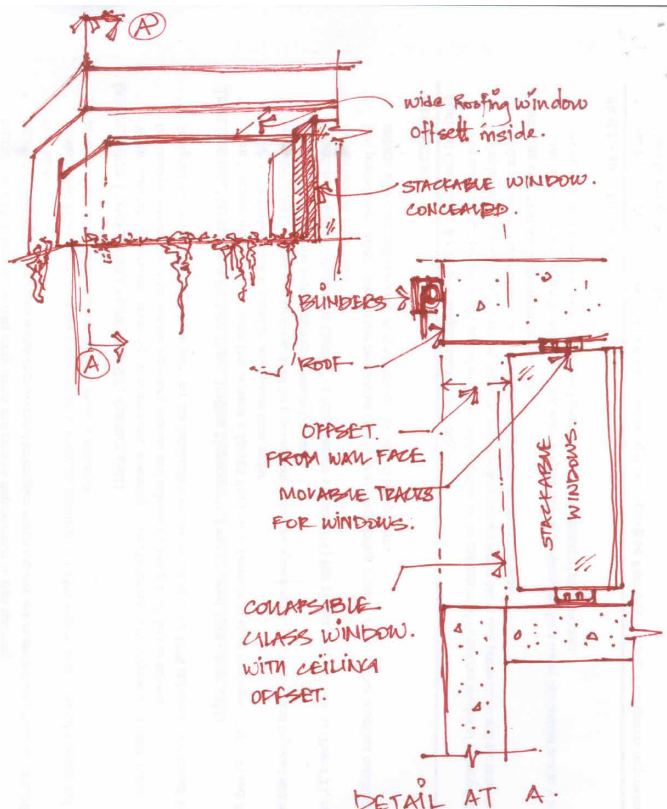 A
wide Roofing window
Offsett inside.
STACKABLE WINDOW.
CONCEALED.
BLINDERS
A
ROOF
OFFSET.
FROM WALL FACE
MOVABLE TRACKS
FOR WINDOWS.
STACKABLE
WINDOWS.
COLLAPSIBLE
GLASS WINDOW.
WITH CEILING
OFFSET.
DETAIL AT A.